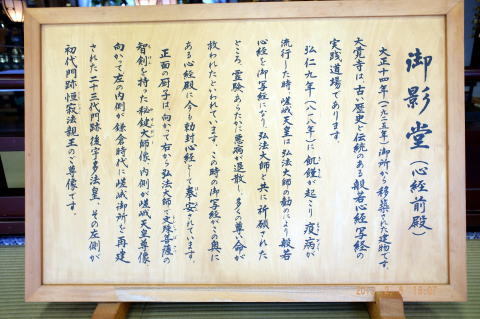 御影堂（心経前殿）
大正十四年（一九二五年）御所から移築された建物です。
大覚寺は、古い歴史と伝統のある般若心経写経の
実践道場であります。
弘仁九年（八一八年）に飢饉が起こり疫病が
流行した時、嵯峨天皇は弘法大師の勧めにより般若
心経を御写経になり、弘法大師と共に祈願された
ところ、霊験あらたかに悪病が退散し、多くの尊い命が
救われたといわれています。この時の御写経がこの奥に
ある心経殿に今も勅封心経として奉安されています。
正面の厨子は、向かて右から弘法大師で文殊菩薩の
智剣を持った秘鍵大師像、内側が嵯峨天皇尊像、
向かて左の内側が鎌倉時代に嵯峨御所を再建
された二十三代門跡後宇多法皇、その左側が
初代門跡恒寂法親王のご尊像です。